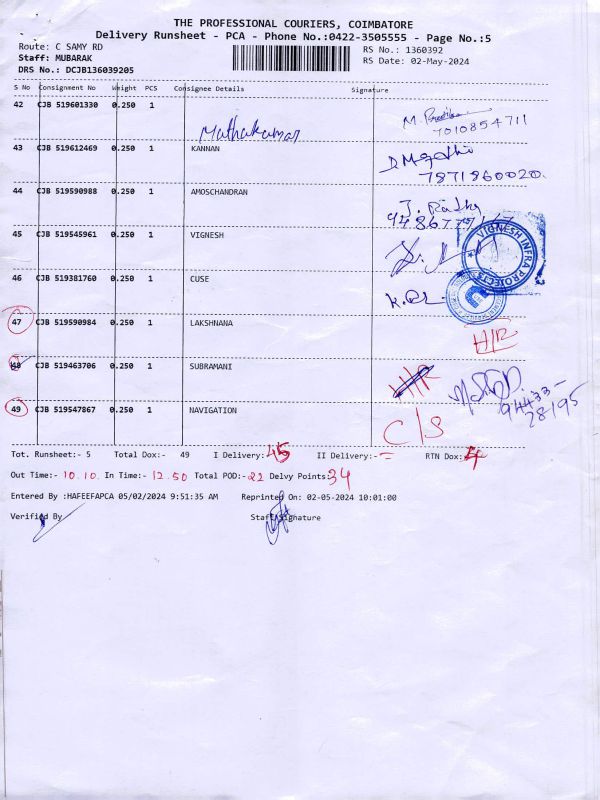 THE PROFESSIONAL COURIERS, COIMBATORE
Delivery Runsheet - PCA - Phone No.:0422-3505555 - Page No.:5
Route: C SAMY RD RS No.: 1360392
Staff: MUBARAK RS Date: 02-May-2024
DRS No.: DCJB136039205
S No Consignment No Weight PCS Consignee Details Signature
42 CJB 519601330 0.250 1 Muthukumar
7010854711
43 CJB 519612469 0.250 1 KANNAN
7871860020
44 CJB 519590988 0.250 1 AMOSCHANDRAN
45 CJB 519545961 0.250 1 VIGNESH
VIGNESH INFRA PROJECTS
46 CJB 519381760 0.250 1 CUSE
47 CJB 519590984 0.250 1 LAKSHNANA
H/R
48 CJB 519463706 0.250 1 SUBRAMANI H/R
94433-
28195
49 CJB 519547867 0.250 1 NAVIGATION
C/S
Tot. Runsheet:- 5 Total Dox:- 49 I Delivery: 45 II Delivery:- = RTN Dox: 4
Out Time:- 10.10. In Time:- 12.50 Total POD:- 22 Delvy Points: 34
Entered By :HAFEEFAPCA 05/02/2024 9:51:35 AM Reprinted On: 02-05-2024 10:01:00
Verified By Staff Signature